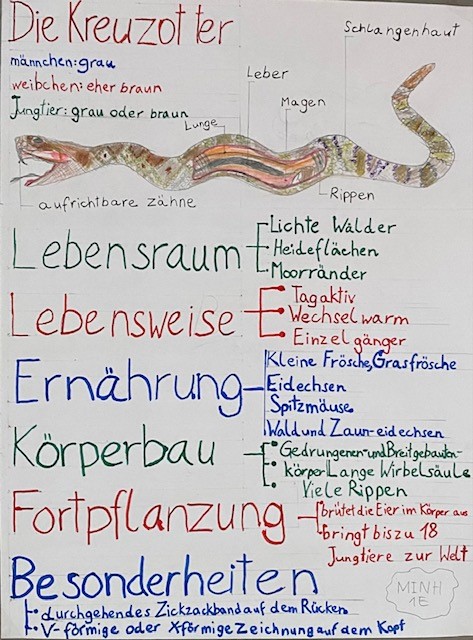 Die Kreuzotter
männchen: grau
weibchen: eher braun
Jungtier: grau oder braun
Schlangenhaut
Leber
Magen
Lunge
Rippen
aufrichtbare zähne
Lebensraum
Lichte Wälder
Heideflächen
Moorränder
Lebensweise
Tagaktiv
Wechselwarm
Einzelgänger
Ernährung
Kleine Frösche, Grasfrösche
Eidechsen
Spitzmäuse
Wald und Zaun-eidechsen
Körperbau
Gedrungenen-und Breitgebauten-
körper Lange Wirbelsäule
Viele Rippen
Fortpflanzung
brütet die Eier im Körper aus
bringt bis zu 18
Jungtiere zur Welt
Besonderheiten
durchgehendes Zickzackband auf dem Rücken
V-förmige oder Xförmige Zeichnung auf dem Kopf
MINH
1E